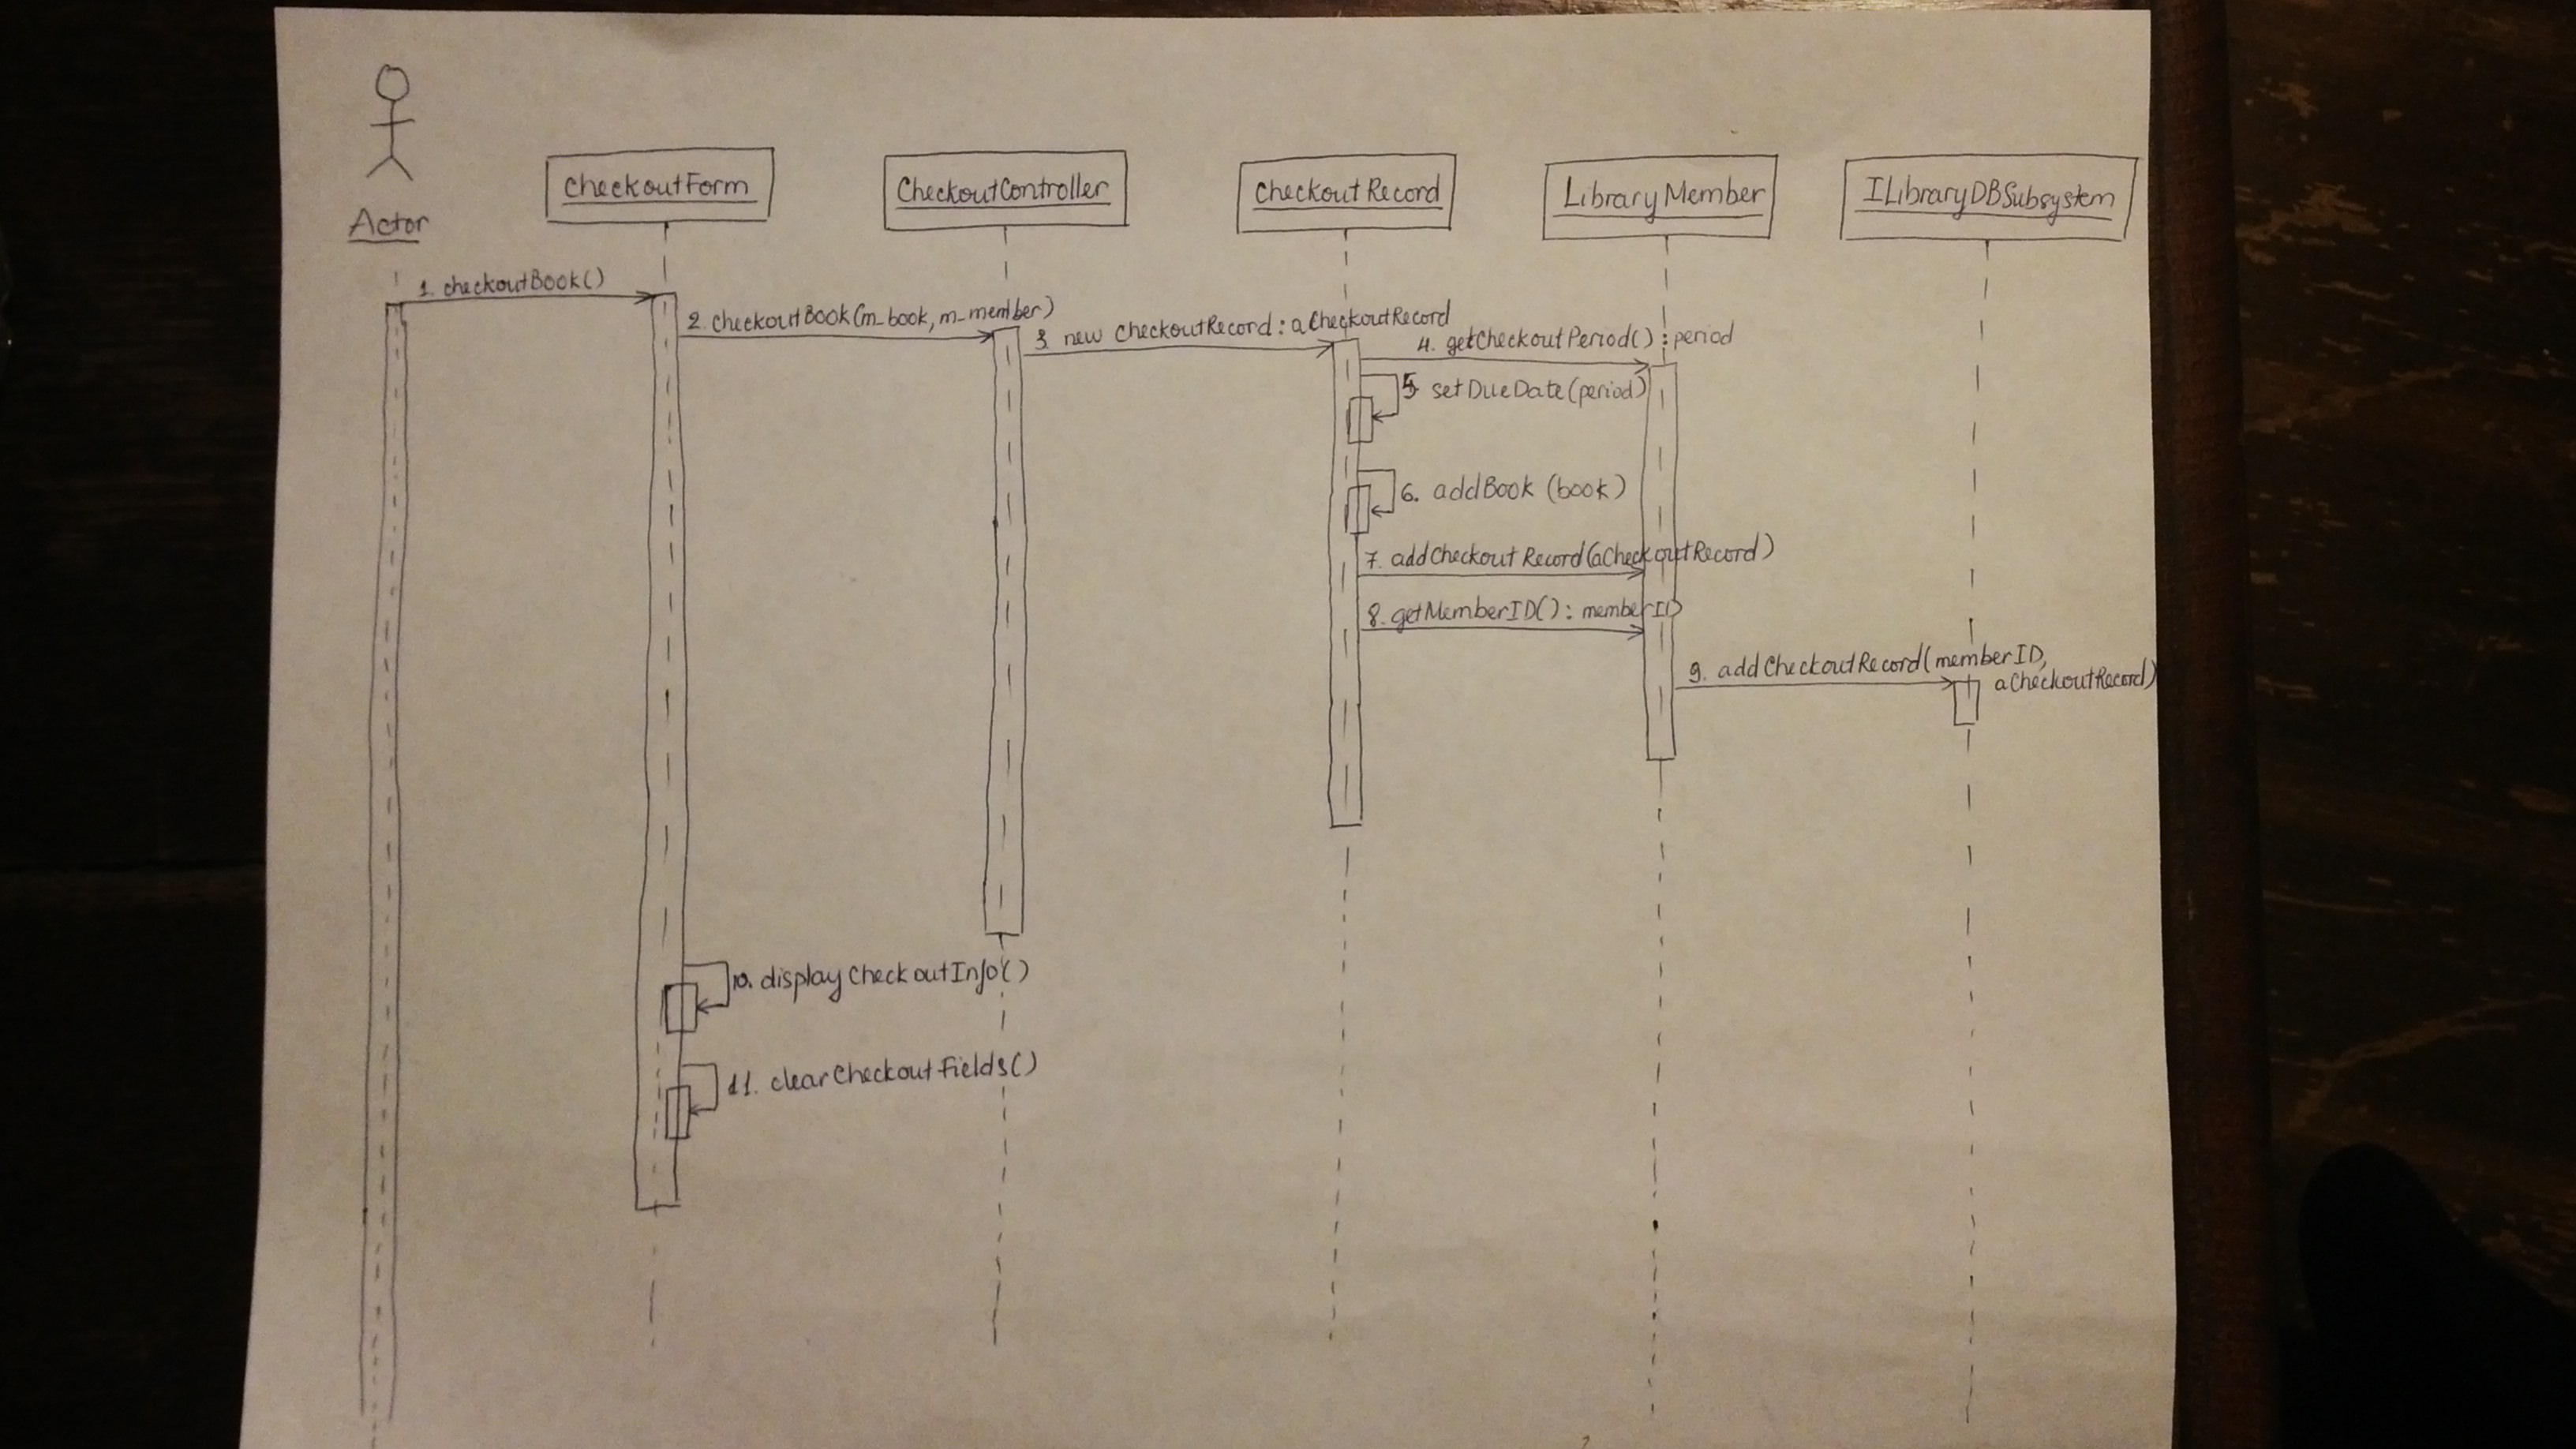 Actor
CheckoutForm
CheckoutController
CheckoutRecord
LibraryMember
ILibraryDBSubsystem
1. checkoutBook()
2. checkoutBook(m_book, m_member)
3. new CheckoutRecord : aCheckoutRecord
4. getCheckoutPeriod() : period
5. setDueDate(period)
6. addBook (book)
7. addCheckoutRecord(aCheckoutRecord)
8. getMemberID() : memberID
9. addCheckoutRecord(memberID,
aCheckoutRecord)
10. displayCheckoutInfo()
11. clearCheckoutFields()